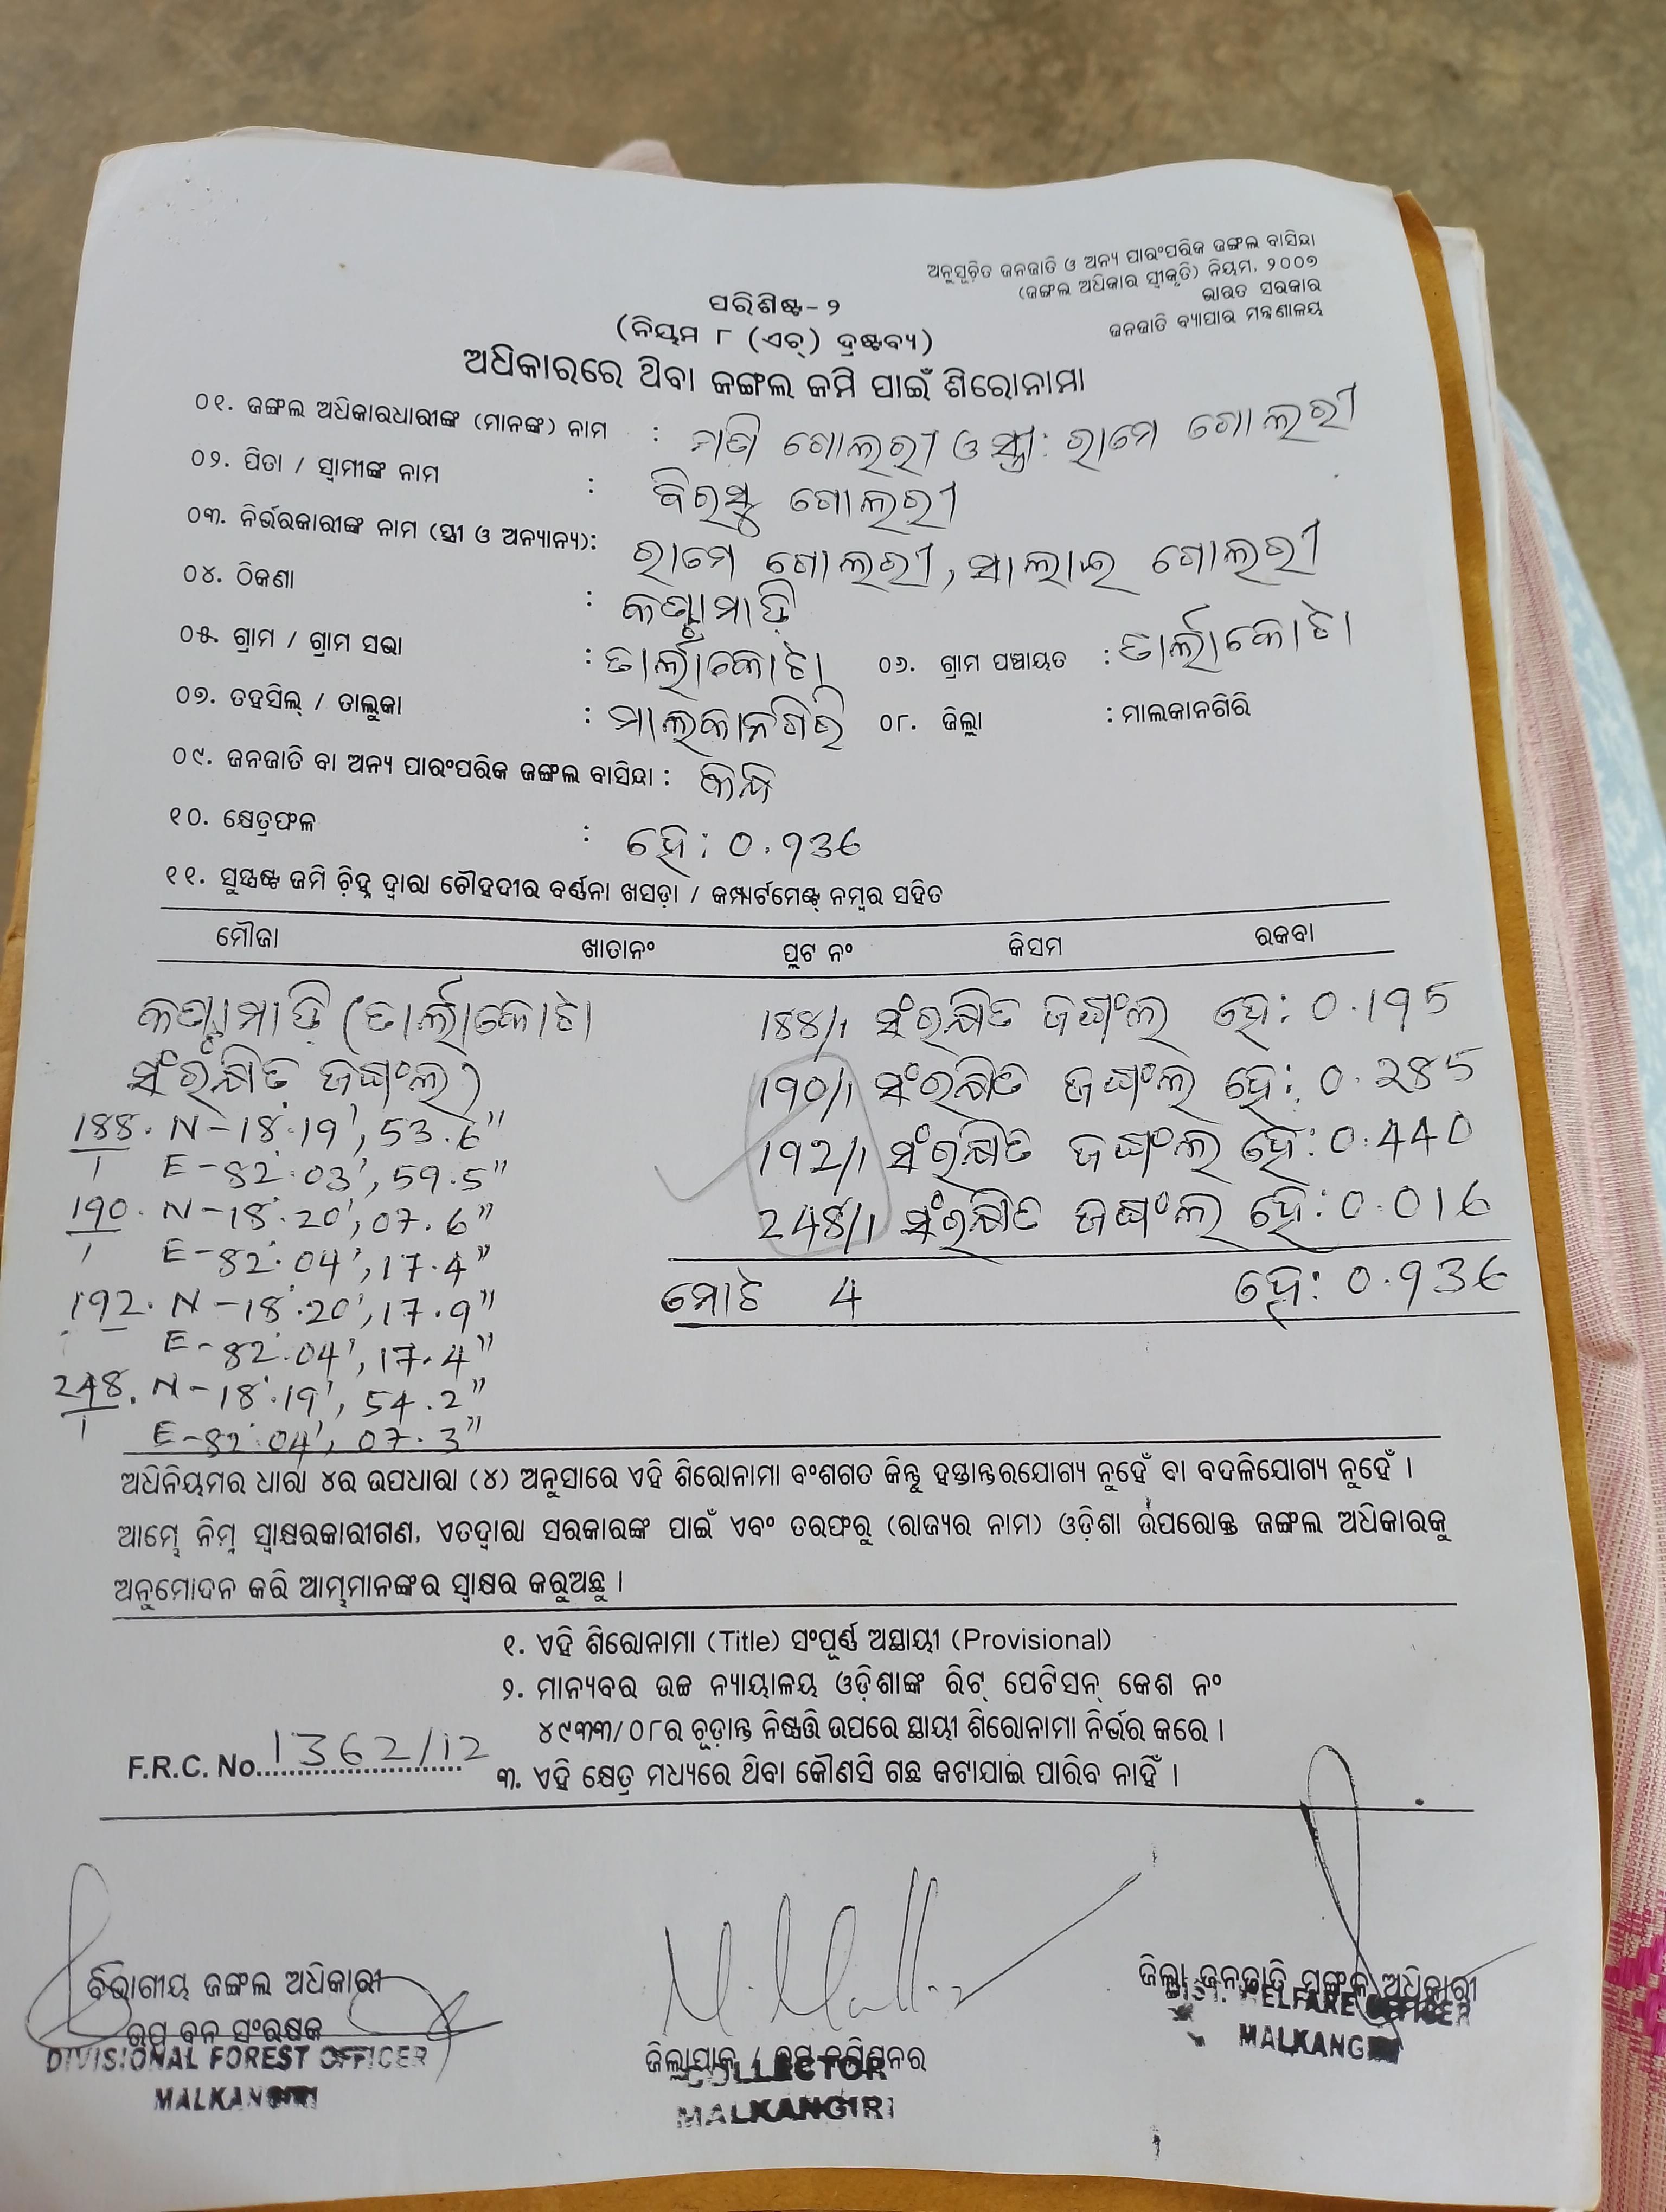 ଅନୁସୂଚିତ ଜନଜାତି ଓ ଅନ୍ୟ ପାରଂପରିକ ଜଙ୍ଗଲ ବାସିନ୍ଦା
(ଜଙ୍ଗଲ ଅଧିକାର ସ୍ୱୀକୃତି) ନିୟମ, ୨୦୦୭
ଭାରତ ସରକାର
ଜନଜାତି ବ୍ୟାପାର ମନ୍ତ୍ରଣାଳୟ
ପରିଶିଷ୍ଟ-୨
(ନିୟମ ୮ (ଏଚ୍) ଦ୍ରଷ୍ଟବ୍ୟ)
ଅଧିକାରରେ ଥିବା ଜଙ୍ଗଲ ଜମି ପାଇଁ ଶିରୋନାମା
୦୧. ଜଙ୍ଗଲ ଅଧିକାରଧାରୀଙ୍କ (ମାନଙ୍କ) ନାମ : ଗୋଲରୀ ଓ ସ୍ତ୍ରୀ: ରାମେ ଗୋଲରୀ
୦୨. ପିତା / ସ୍ୱାମୀଙ୍କ ନାମ : ଗୋଲରୀ
୦୩. ନିର୍ଭରକାରୀଙ୍କ ନାମ (ସ୍ତ୍ରୀ ଓ ଅନ୍ୟାନ୍ୟ): ରାମେ ଗୋଲରୀ, ଗୋଲରୀ
୦୪. ଠିକଣା :
୦୫. ଗ୍ରାମ / ଗ୍ରାମ ସଭା : ତାର୍ଲାକୋଟା ୦୬. ଗ୍ରାମ ପଞ୍ଚାୟତ : ତାର୍ଲାକୋଟା
୦୭. ତହସିଲ୍ / ତାଲୁକା : ମାଲକାନଗିରି ୦୮. ଜିଲ୍ଲା : ମାଲକାନଗିରି
୦୯. ଜନଜାତି ବା ଅନ୍ୟ ପାରଂପରିକ ଜଙ୍ଗଲ ବାସିନ୍ଦା :
୧୦. କ୍ଷେତ୍ରଫଳ : ହେ: 0.936
୧୧. ସୁସ୍ପଷ୍ଟ ଜମି ଚିହ୍ନ ଦ୍ୱାରା ଚୌହଦୀର ବର୍ଣ୍ଣନା ଖସଡ଼ା / କମ୍ପାର୍ଟମେଣ୍ଟ୍ ନମ୍ବର ସହିତ
ମୌଜା ଖାତାନଂ ପ୍ଲଟ ନଂ କିସମ ରକବା
(ତାର୍ଲାକୋଟା
ସଂରକ୍ଷିତ ଜଙ୍ଗଲ)
188/1. N-18°.19', 53.6"
E-82°.03', 59.5"
190/1. N-18°.20', 07.6"
E-82°.04', 17.4"
192. N-18°.20', 17.9"
E-82°.04', 17.4"
248/1. N-18°.19', 54.2"
E-82°.04', 07.3"
188/1 ସଂରକ୍ଷିତ ଜଙ୍ଗଲ ହେ: 0.195
190/1 ସଂରକ୍ଷିତ ଜଙ୍ଗଲ ହେ: 0.285
192/1 ସଂରକ୍ଷିତ ଜଙ୍ଗଲ ହେ: 0.440
248/1 ସଂରକ୍ଷିତ ଜଙ୍ଗଲ ହେ: 0.016
ମୋଟ 4 ହେ: 0.936
ଅଧିନିୟମର ଧାରା ୪ର ଉପଧାରା (୪) ଅନୁସାରେ ଏହି ଶିରୋନାମା ବଂଶଗତ କିନ୍ତୁ ହସ୍ତାନ୍ତରଯୋଗ୍ୟ ନୁହେଁ ବା ବଦଳିଯୋଗ୍ୟ ନୁହେଁ ।
ଆମ୍ଭେ ନିମ୍ନ ସ୍ୱାକ୍ଷରକାରୀଗଣ, ଏତଦ୍ୱାରା ସରକାରଙ୍କ ପାଇଁ ଏବଂ ତରଫରୁ (ରାଜ୍ୟର ନାମ) ଓଡ଼ିଶା ଉପରୋକ୍ତ ଜଙ୍ଗଲ ଅଧିକାରକୁ
ଅନୁମୋଦନ କରି ଆମ୍ଭମାନଙ୍କର ସ୍ୱାକ୍ଷର କରୁଅଛୁ ।
୧. ଏହି ଶିରୋନାମା (Title) ସଂପୂର୍ଣ୍ଣ ଅସ୍ଥାୟୀ (Provisional)
୨. ମାନ୍ୟବର ଉଚ୍ଚ ନ୍ୟାୟାଳୟ ଓଡ଼ିଶାଙ୍କ ରିଟ୍ ପେଟିସନ୍ କେଶ ନଂ
୪୯୩୩/୦୮ର ଚୂଡ଼ାନ୍ତ ନିଷ୍ପତ୍ତି ଉପରେ ସ୍ଥାୟୀ ଶିରୋନାମା ନିର୍ଭର କରେ ।
F.R.C. No. 1362/12
୩. ଏହି କ୍ଷେତ୍ର ମଧ୍ୟରେ ଥିବା କୌଣସି ଗଛ କଟାଯାଇ ପାରିବ ନାହିଁ ।
ବିଭାଗୀୟ ଜଙ୍ଗଲ ଅଧିକାରୀ
ଉପ ବନ ସଂରକ୍ଷକ
DIVISIONAL FOREST OFFICER
MALKANGIRI
ଜିଲ୍ଲାପାଳ / ଉପ କମିଶନର
COLLECTOR
MALKANGIRI
ଜିଲ୍ଲା ଜନଜାତି ମଙ୍ଗଳ ଅଧିକାରୀ
DIST. WELFARE OFFICER
MALKANGIRI